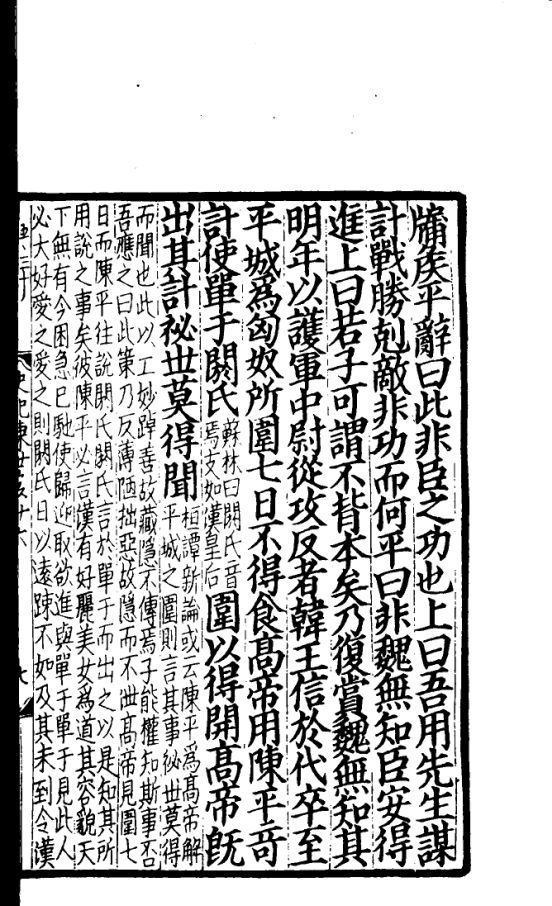 牖侯平辭曰此非臣之功也上曰吾用先生謀
計戰勝剋敵非功而何平曰非魏無知臣安得
進上曰若子可謂不背本矣乃復賞魏無知其
明年以護軍中尉從攻反者韓王信於代卒至
平城為匈奴所圍七日不得食髙帝用陳平竒
計使單于閼氏
蘇林曰閼氏音
焉支如漢皇后
圍以得開髙帝旣
出其計祕世莫得聞
桓譚新論或云陳平爲髙帝解
平城之圍則言其事祕世莫得
而聞也此以工妙踔善故藏隱不傳焉子能權知斯事否
吾應之曰此策乃反薄陋拙惡故隱而不泄髙帝見圍七
日而陳平往說閼氏閼氏言於單于而出之以是知其所
用說之事矣彼陳平必言漢有好麗美女爲道其容貌天
下無有今困急已馳使歸迎取欲進與單于單于見此人
必大好愛之愛之則閼氏日以遠踈不如及其未到令漢